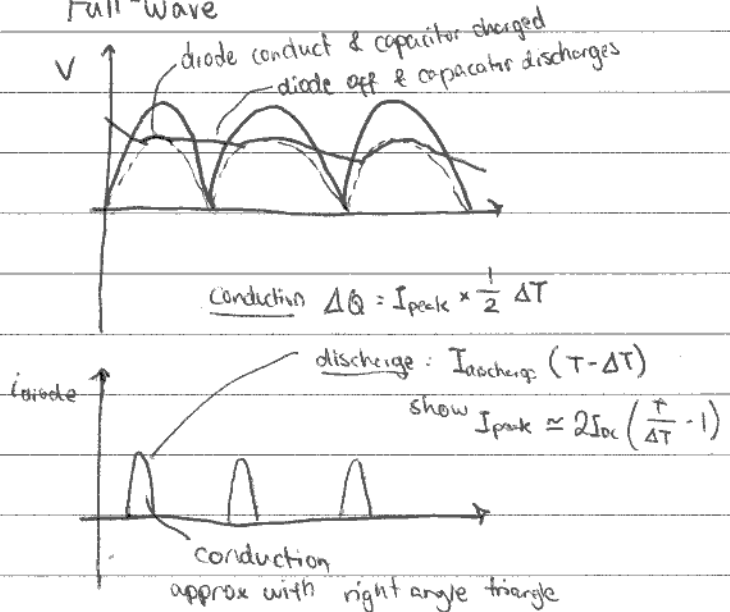 Full-wave
diode conduct & capacitor charged
V
diode off & capacator discharges
Conduction ΔQ = I_peak × 1/2 ΔT
discharge : I_discharge (T - ΔT)
i_diode
show I_peak ≃ 2I_DC (T/ΔT - 1)
conduction
approx with right angle triangle